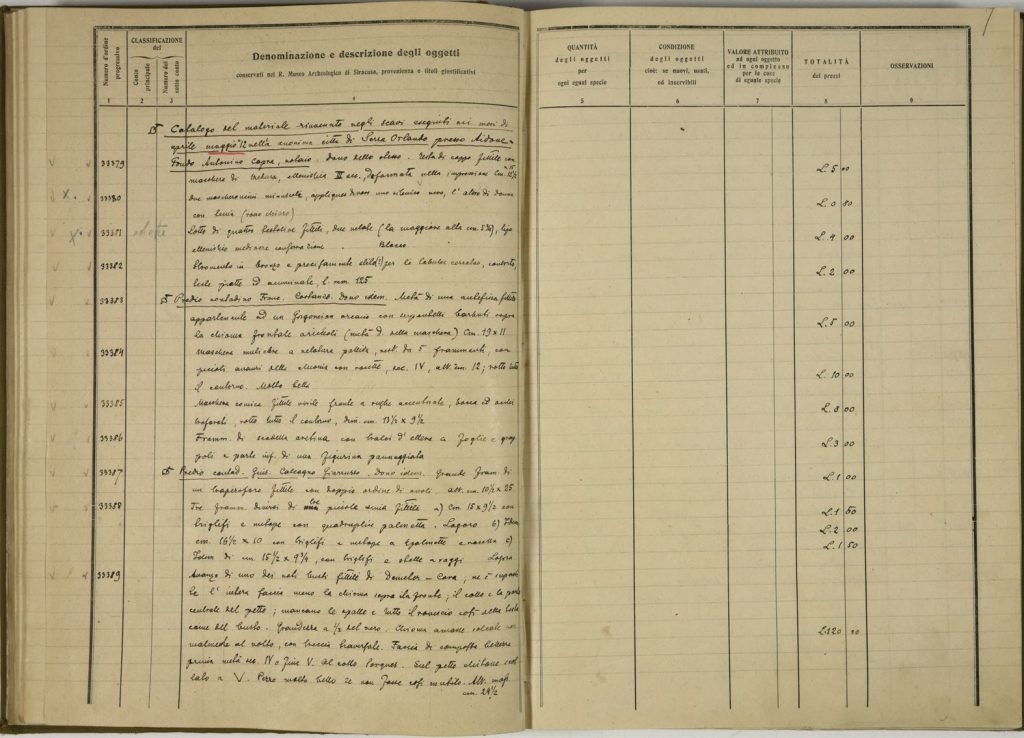 Numero d'ordine progressivo
CLASSIFICAZIONE del
Conto principale
Numero del sotto conto
Denominazione e descrizione degli oggetti
conservati nel R. Museo Archeologico di Siracusa, provenienza e titoli giustificativi
1 2 3 4
Catalogo del materiale rinvenuto negli scavi eseguiti nei mesi di
aprile maggio '12 nella anonima città di Serra Orlando presso Aidone
33379 Fondo Antonino Capra, notaio. Dono dello stesso. Testa di fittile con
maschera di sec. Deformata nella impressione cm.
33380 due mascheroncini minuscole, appliques di vaso uno silenico nero, l'altro di donna
con (raso chiaro)
33381 Lotto di quattro fittili, due velate (la maggiore alta cm.
mediocre conservazione. Blocco
33382 Stromento in bronzo e precisamente per le tabulae ceratae, contorto,
l. mm 125
33383 Predio contadino Franc. Costanzo. Dono idem. Metà di una antefissa fittile
appartenente ad un Gorgoneion arcaico con
la chioma frontale (metà d. della maschera) cm. 19 x 11
33384 Maschera muliebre a velatura pallida, rest. da 5 frammenti, con
piccoli avanzi della con sec. IV, alt. cm. 12; rotto tutto
il contorno. Molto bella
33385 Maschera comica fittile virile fronte a rughe accentuate, bocca ed occhi
traforati, rotto tutto il contorno, dim. cm. 13½ x 9½
33386 Framm. di scodella aretina con tralci d'ellera a foglie e grap
poli e parte inf. di una figurina panneggiata
33387 Predio contad. Gius. Calcagno Giarrusso. Dono idem. Grande fram. di
un fittile con doppio ordine di ovoli. alt. cm. 10½ x 25
33388 Tre framm. diversi di tre piccole fittili a) cm 15 x 9½ con
triglifi e metope con quadruplice palmetta. Logoro b) Idem
cm. 16½ x 10 con triglifi e metope a palmette e rosetta c)
Idem di cm. 15½ x 9¾, con triglifi e stelle a raggi Logora
33389 Avanzo di uno dei noti busti fittili di Demeter - Cora; ne è
te l'intera faccia meno la chioma sopra la fronte; il collo e la parte
centrale del petto; mancano le spalle e tutto il rovescio così della testa
come del busto. Grandezza a ½ del vero. Chioma
al volto, con treccia trasversale. Faccia di composta bellezza
prima metà sec. IV o fine V. al collo torques. Sul petto chitone
lato a V. Pezzo molto bello se non fosse così mutilo. Alt. mass.
cm. 24½
7
QUANTITÀ degli oggetti per ogni egual specie
CONDIZIONE degli oggetti cioè: se nuovi, usati, od inservibili
VALORE ATTRIBUITO ad ogni oggetto od in complesso per le cose di eguale specie
TOTALITÀ dei prezzi
OSSERVAZIONI
5 6 7 8 9
L. 5 00
L. 0 80
L. 4 00
L. 2 00
L. 5 00
L. 10 00
L. 8 00
L. 3 00
L. 1 00
L. 1 50
L. 2 00
L. 1 50
L. 120 00